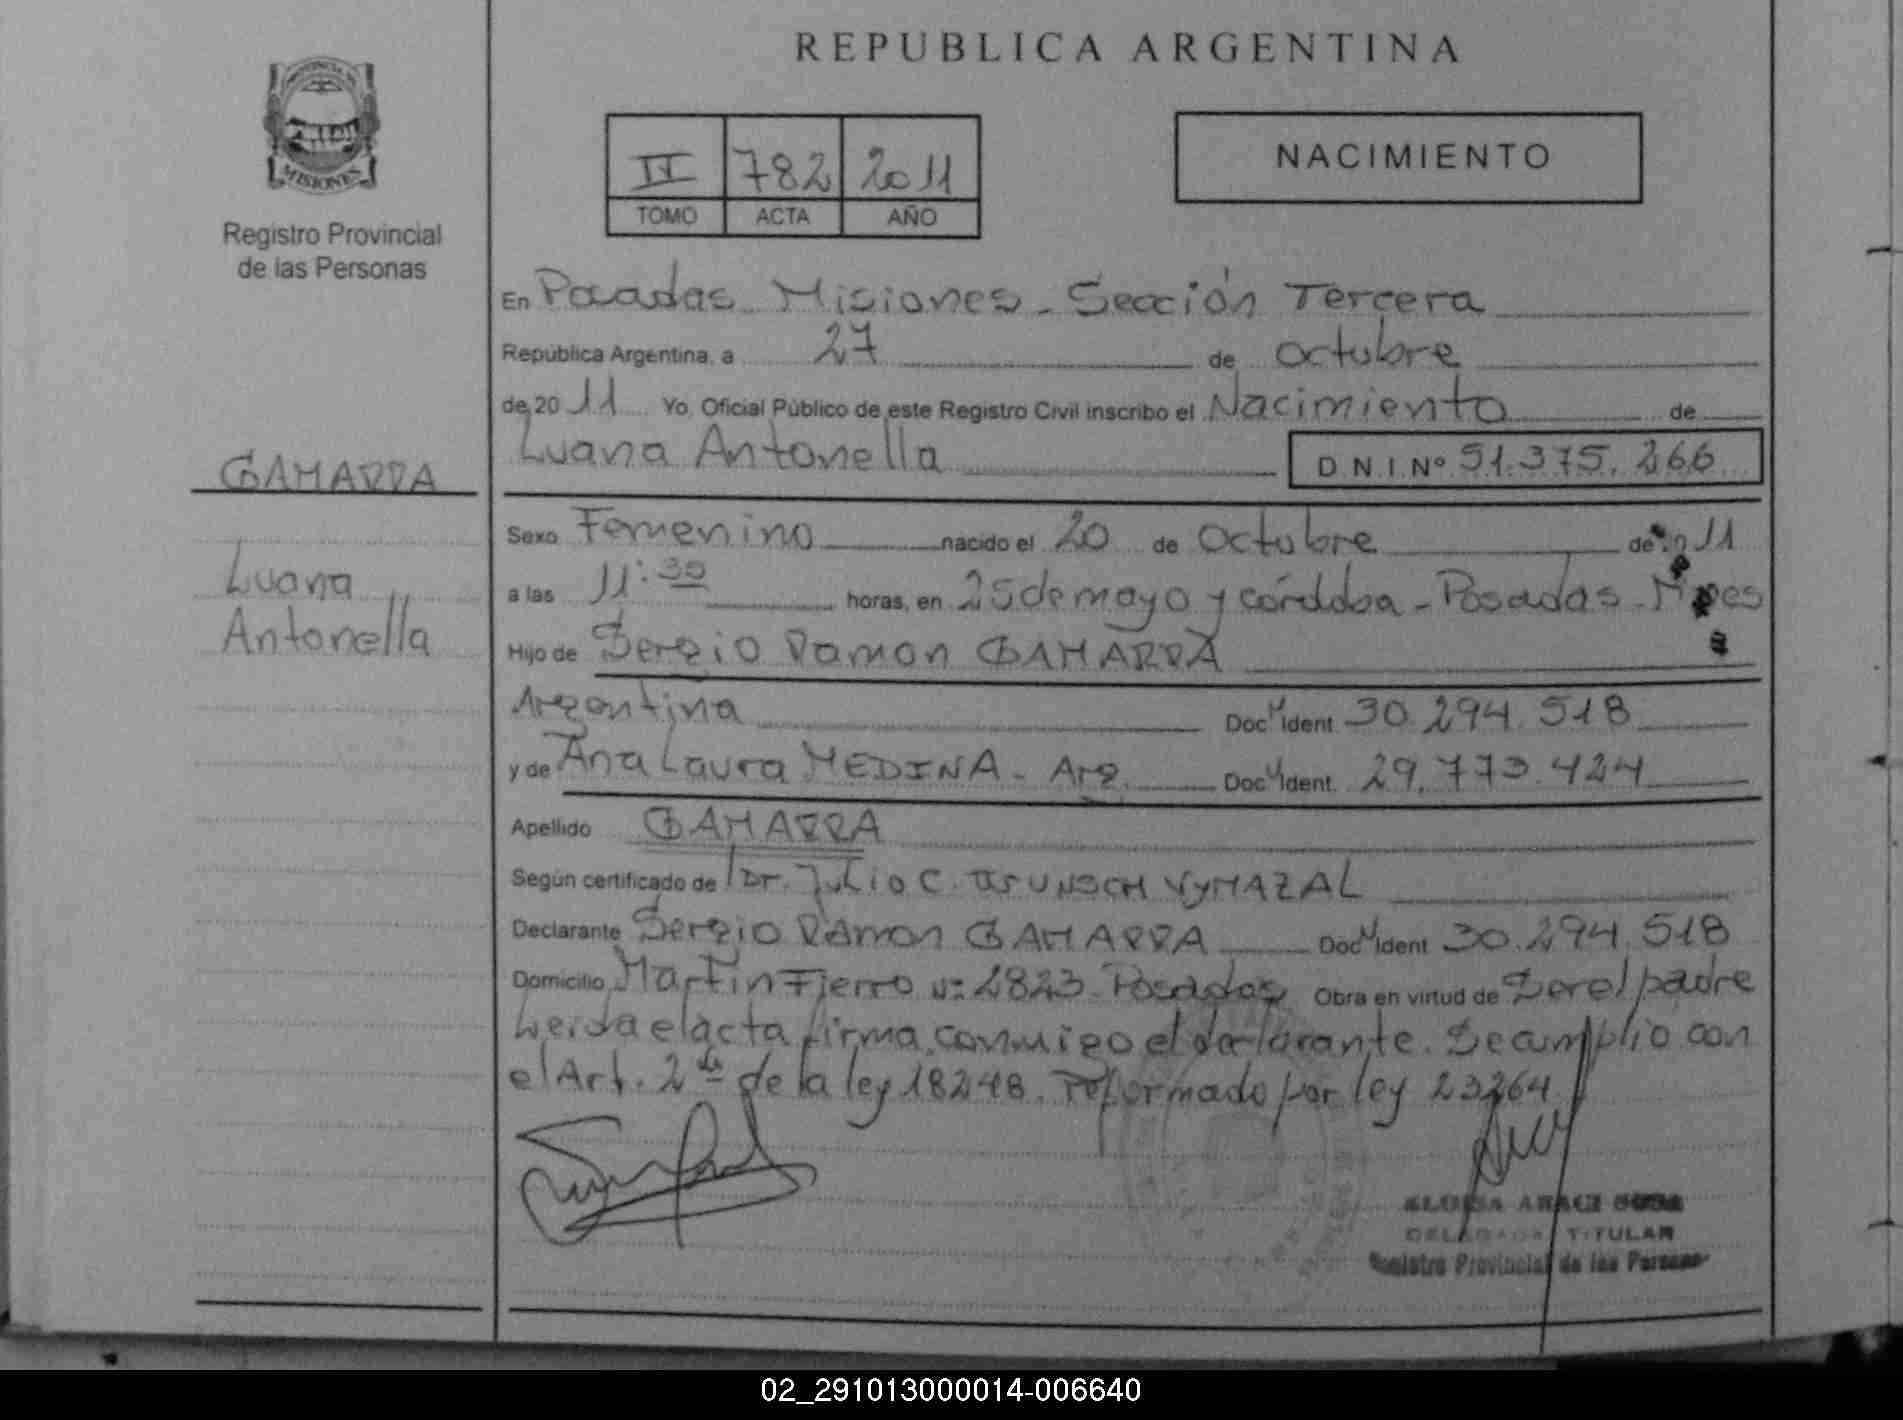 REPUBLICA ARGENTINA
PROVINCIA DE
MISIONES
Registro Provincial
de las Personas
II 782 2011
TOMO ACTA AÑO
NACIMIENTO
En Posadas Misiones - Sección Tercera
República Argentina, a 27 de octubre
de 20 11 Yo, Oficial Público de este Registro Civil inscribo el Nacimiento de
Luana Antonella D.N.I.Nº 51.375.266
GAMARRA
Luana
Antonella
Sexo Femenino nacido el 20 de Octubre de 11
a las 11:30 horas, en 25 de mayo y córdoba - Posadas - Mnes
Hijo de Sergio Ramon GAMARRA
Argentina Doc Ident. 30.294.518
y de Ana Laura MEDINA - Arg. Doc Ident. 29.773.424
Apellido GAMARRA
Según certificado de Dr. Julio C. VYMAZAL
Declarante Sergio Ramon GAMARRA Doc Ident 30.294.518
Domicilio Martin Fierro Nº 2823 - Posadas Obra en virtud de Ser el padre
Leida el acta firma conmigo el declarante. Se cumplio con
el Art. 2 de la ley 18248. reformado por ley 23264
TITULAR
Registro Provincial de las Personas
02_291013000014-006640